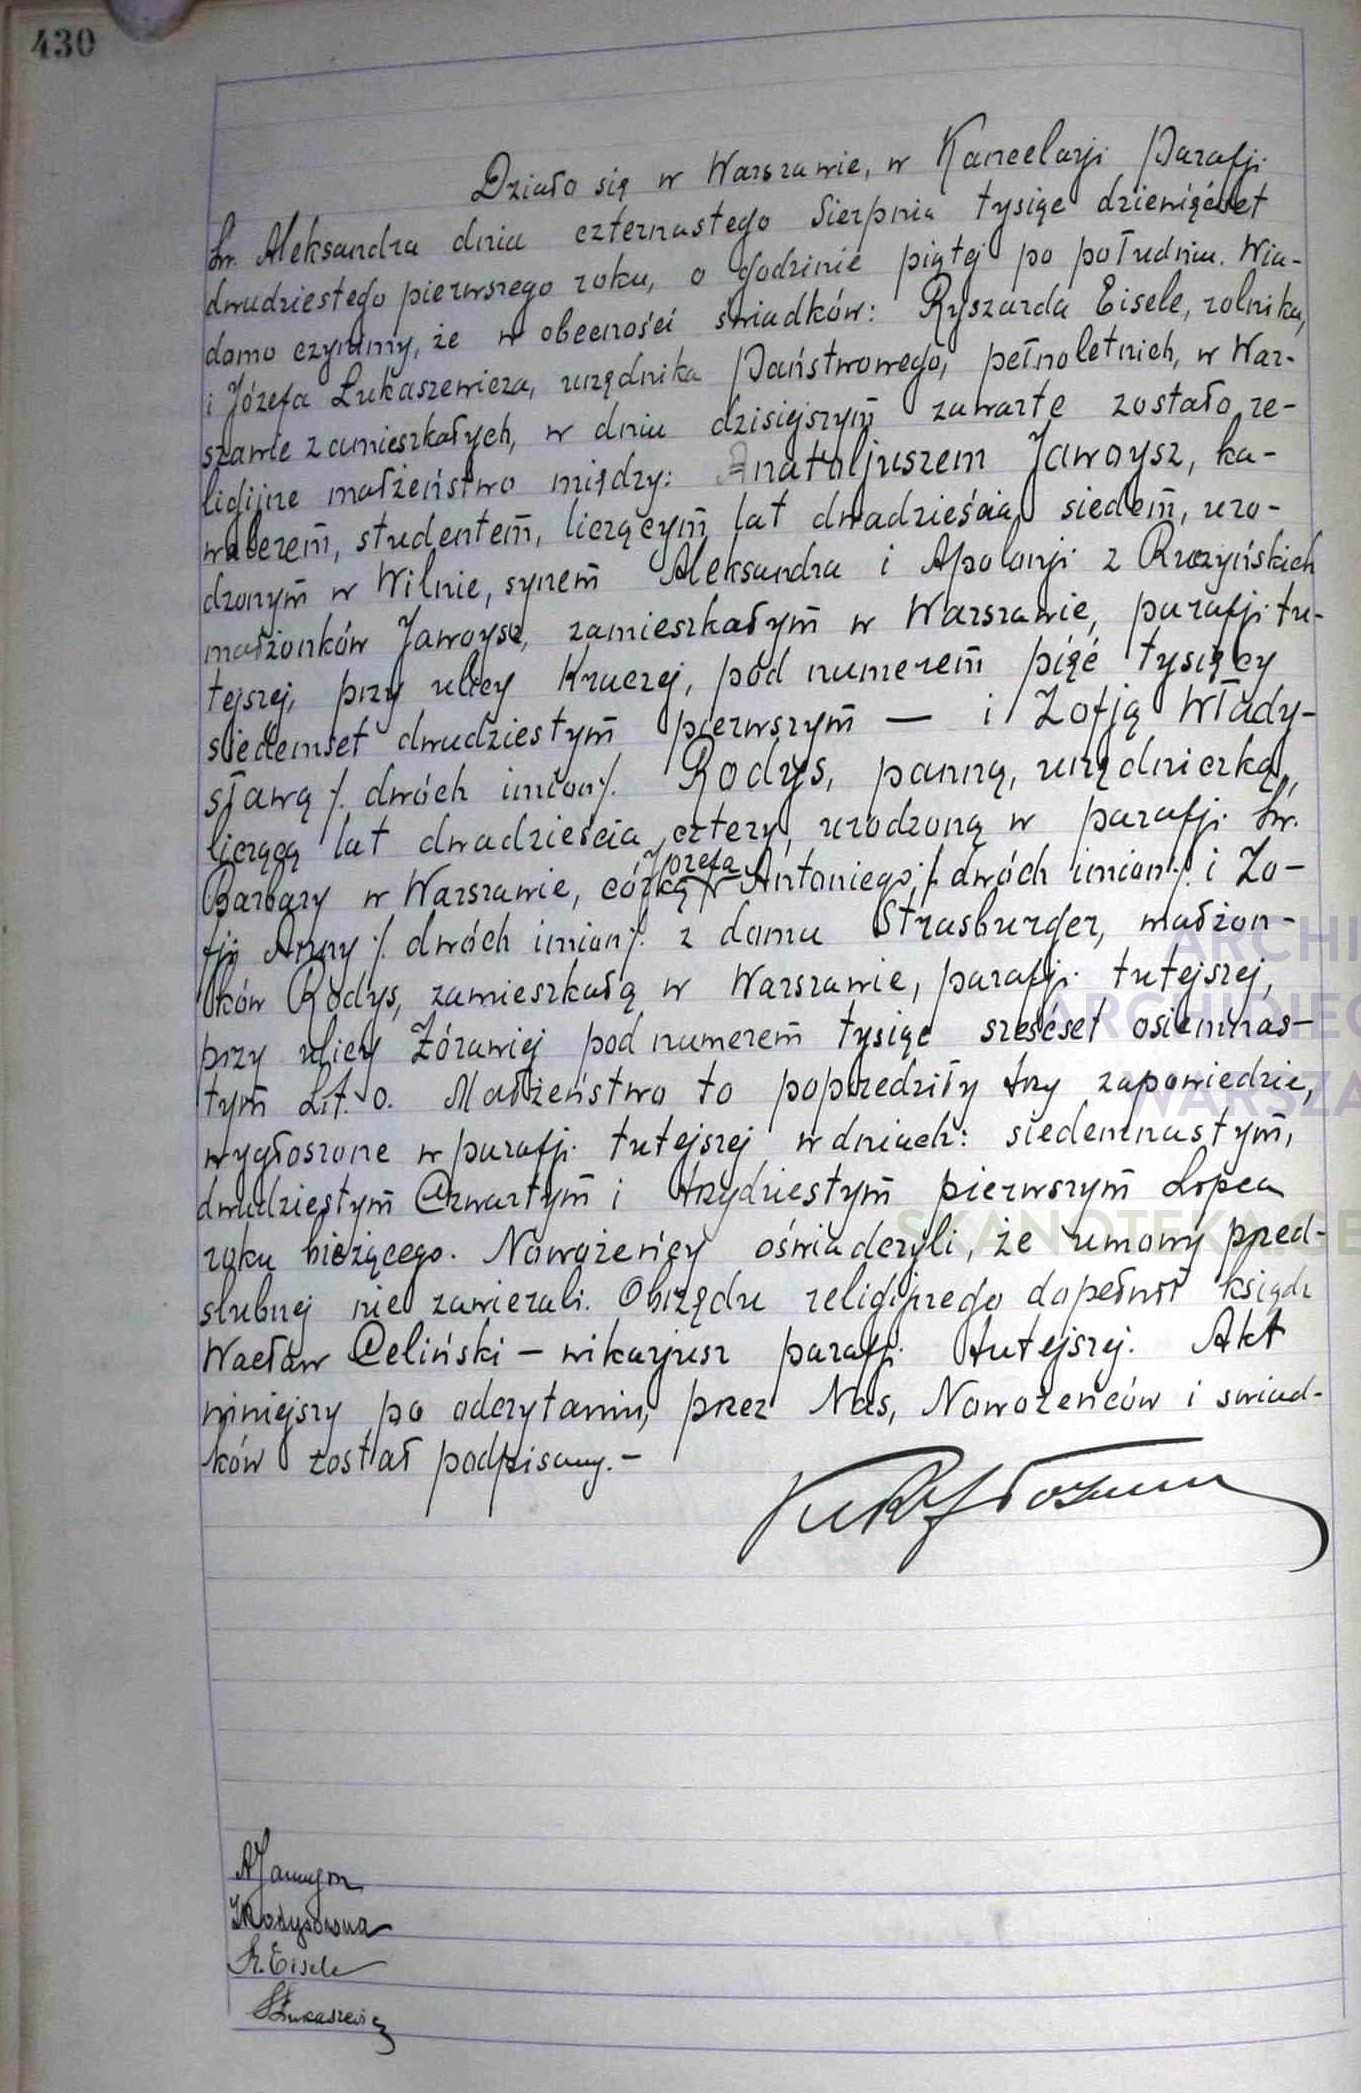 430
Działo się w Warszawie, w Kancelarji Parafji
Św. Aleksandra dnia czternastego Sierpnia tysiąc dziewięćset
dwudziestego pierwszego roku, o godzinie piątej po południu. Wia-
domo czynimy, że w obecności świadków: Ryszarda Eisele, rolnika,
i Józefa Łukaszewicza, urzędnika Państwowego, pełnoletnich, w War-
szawie zamieszkałych, w dniu dzisiejszym zawarte zostało re-
ligijne małżeństwo między: Anatoljuszem Jawoysz, ka-
walerem, studentem, liczącym lat dwadzieścia siedem, uro-
dzonym w Wilnie, synem Aleksandra i Apolonji z Ruczyńskich
małżonków Jawoysz, zamieszkałym w Warszawie, parafji tu-
tejszej, przy ulicy Kruczej, pod numerem pięć tysięcy
siedemset dwudziestym pierwszym — i Zofją Włady-
sławą /. dwóch imion /. Rodys, panną, urzędniczką,
liczącą lat dwadzieścia cztery, urodzoną w parafji Św.
Barbary w Warszawie, córką Józefa Antoniego /. dwóch imion /. i Zo-
fji Anny /. dwóch imion /. z domu Strasburger, małżon-
ków Rodys, zamieszkałą w Warszawie, parafji tutejszej,
przy ulicy Żórawiej pod numerem tysiąc szescset osiemnas-
tym Lit. o. Małżeństwo to poprzedziły trzy zapowiedzie,
wygłoszone w parafji tutejszej w dniach: siedemnastym,
dwudziestym Czwartym i trzydziestym pierwszym Lipca
roku bieżącego. Nowożeńcy oświadczyli, że umowy przed-
slubnej nie zawierali. Obrzędu religijnego dopełnił ksiądz
Wacław Celiński — wikarjusz parafji tutejszej. Akt
niniejszy po odczytaniu, przez Nas, Nowożeńców i swiad-
ków został podpisany. —
AJawoysz
ZRodysówna
R. Eisele
JŁukaszewicz
ARCHI
ARCHIDIEC
WARSZA
SKANOTEKA.GE